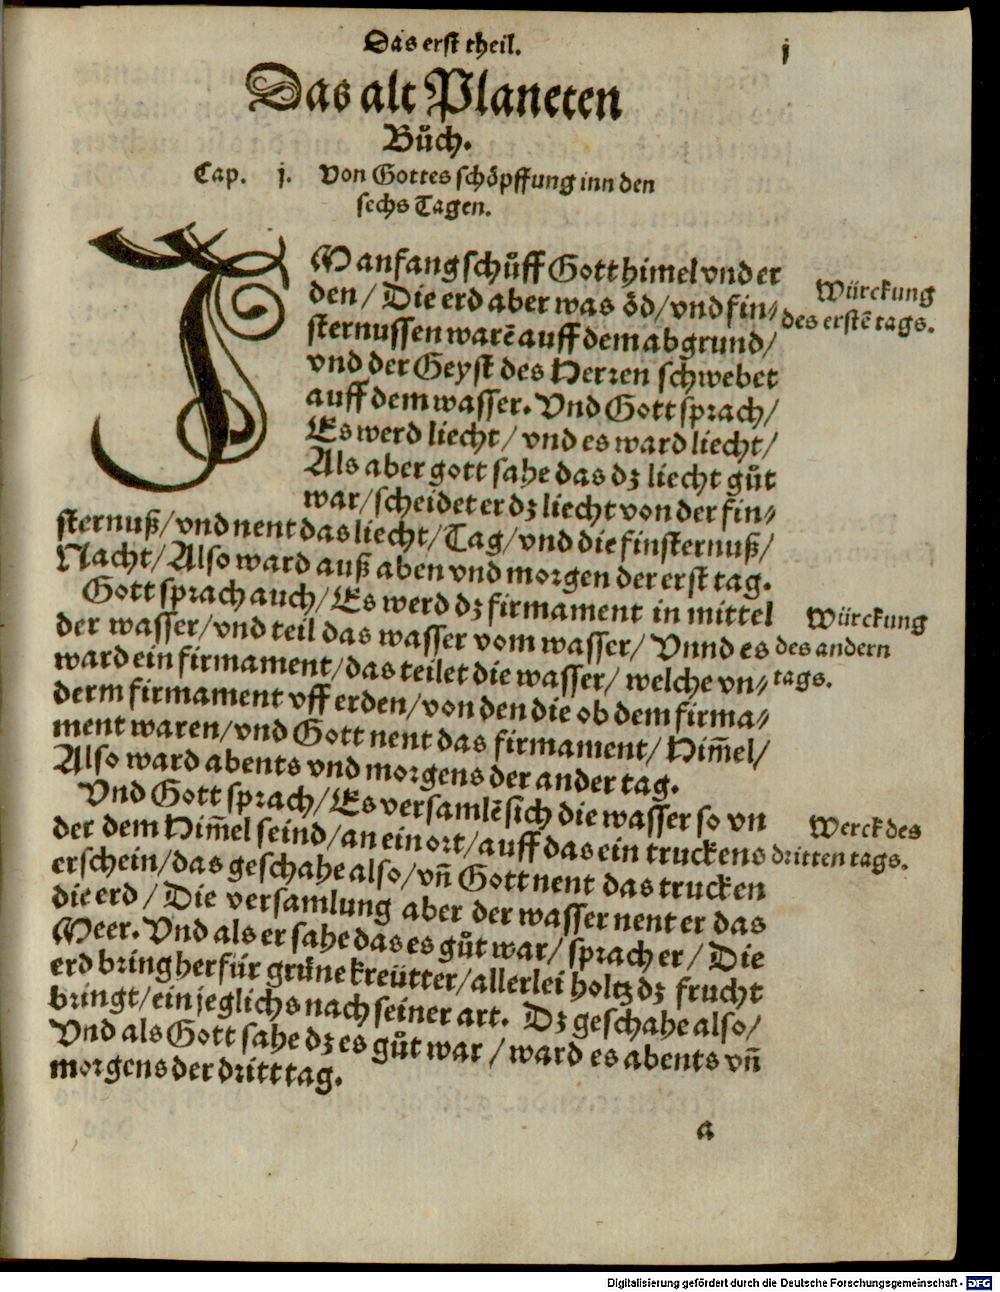 Das erst theil.
j
Das alt Planeten
Bůch.
Cap. j. Von Gottes schöpffung inn den
sechs Tagen.
IM anfang schůff Gott himel vnd er
den / Die erd aber was öd / vnd fin⸗
sternussen warē auff dem abgrund /
vnd der Geyst des Herren schwebet
auff dem wasser. Vnd Gott sprach /
Es werd liecht / vnd es ward liecht /
Als aber gott sahe das dz liecht gůt
war / scheidet er dz liecht von der fin⸗
sternuß / vnd nent das liecht / Tag / vnd die finsternuß /
Nacht / Also ward auß aben vnd morgen der erst tag.
Würckung
des erstē tags.
Gott sprach auch / Es werd dz firmament in mittel
der wasser / vnd teil das wasser vom wasser / Vnnd es
ward ein firmament / das teilet die wasser / welche vn⸗
derm firmament vff erden / von den die ob dem firma⸗
ment waren / vnd Gott nent das firmament / Him̄el /
Also ward abents vnd morgens der ander tag.
Würckung
des andern
tags.
Vnd Gott sprach / Es versamlē sich die wasser so vn
der dem Him̄el seind / an ein ort / auff das ein truckens
erschein / das geschahe also / vn̄ Gott nent das trucken
die erd / Die versamlung aber der wasser nent er das
Meer. Vnd als er sahe das es gůt war / sprach er / Die
erd bring herfür grüne kreütter / allerlei holtz dz frucht
bringt / ein jeglichs nach seiner art. Dz geschahe also /
Vnd als Gott sahe dz es gůt war / ward es abents vn̄
morgens der dritt tag.
Werck des
dritten tags.
a
Digitalisierung gefördert durch die Deutsche Forschungsgemeinschaft - DFG